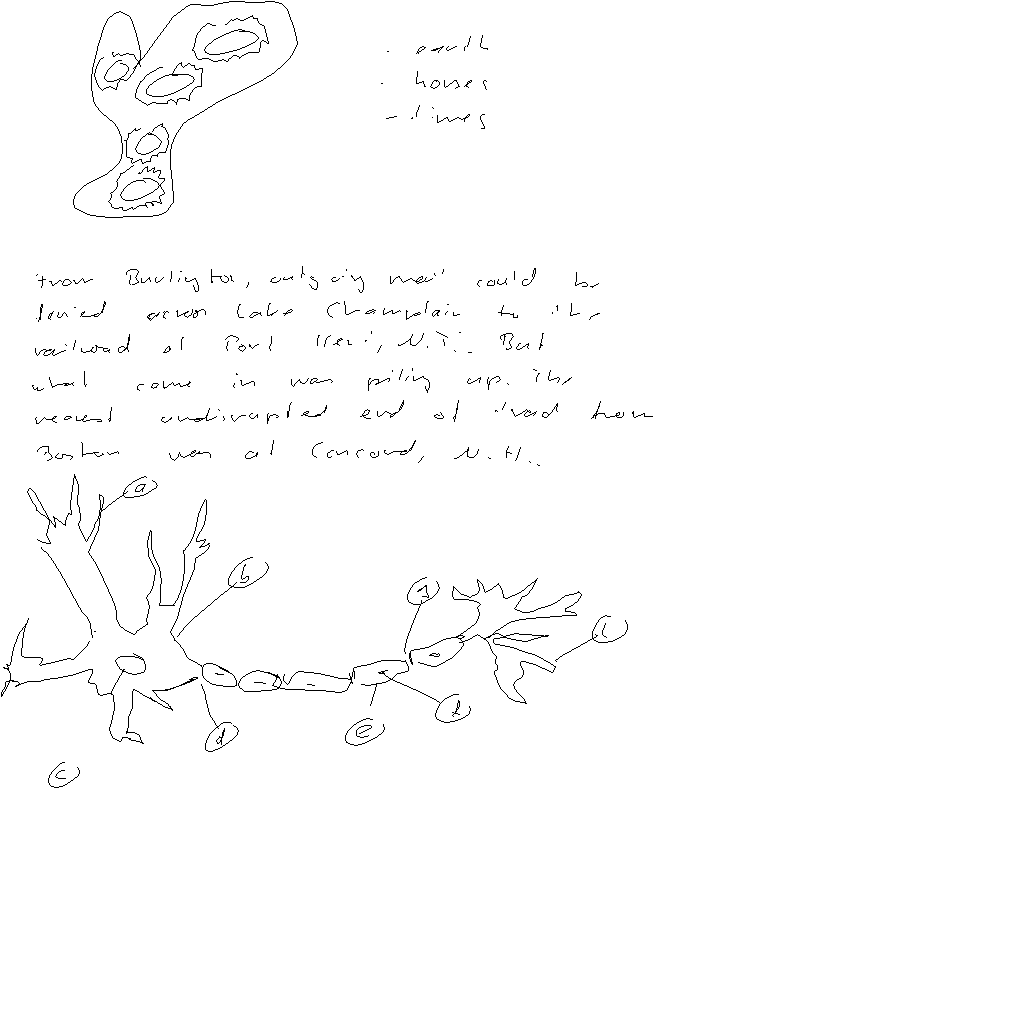 - earth
- houses
- times
from Burlington, outgoing mail could be
ferried across Lake Champlain to the
railroad at Port Henri, N.Y.. But
what came in was piling up. The
nearest undisrupted end of track from
Boston was at Concord, N.H..
a
b
c
d
e
f
g